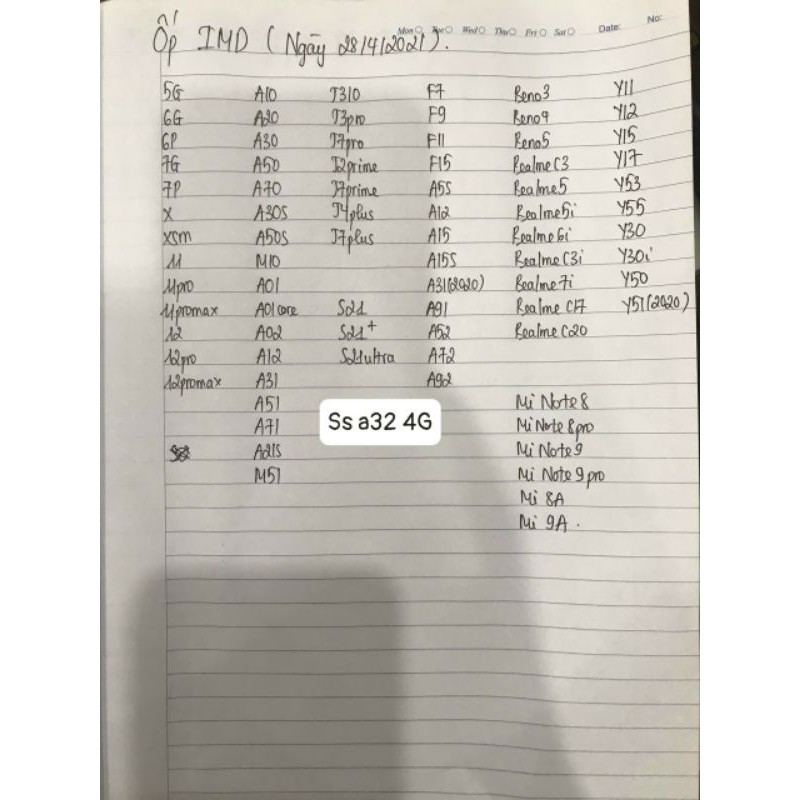 Ốp IMD ( Ngày 28/4/2021).
Mon Tue Wed Thu Fri Sat Date: No:
5G A10 J310 F7 Reno3 Y11
6G A20 J3pro F9 Reno4 Y12
6P A30 J7pro F11 Reno5 Y15
7G A50 J2prime F15 Realme C3 Y17
7P A70 J7prime A5S Realme5 Y53
X A30S J4plus A12 Realme5i Y55
XSM A50S J7plus A15 Realme6i Y30
11 M10 A15S Realme C3i Y30i
11pro A01 A31(2020) Realme7i Y50
11promax A01 core S21 A91 Realme C17 Y51(2020)
12 A02 S21+ A52 Realme C20
12pro A12 S21ultra A72
12promax A31 A92
A51 Mi Note 8
A71 Ss a32 4G Mi Note 8pro
A21S Mi Note 9
M51 Mi Note 9 pro
Mi 8A
Mi 9A.